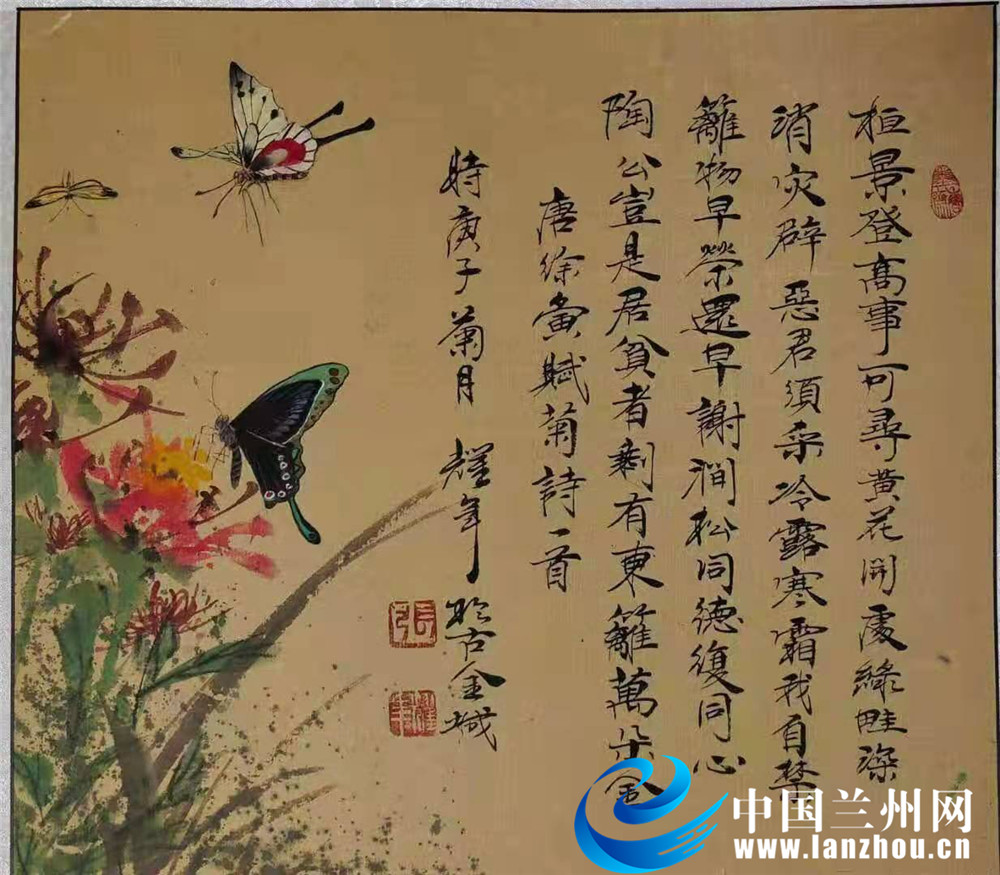 桓景登高事可尋黄花開處綠畦深
消灾辟惡君須采冷露寒霜我自禁
籬物早榮還早謝澗松同德復同心
陶公豈是居貧者剩有東籬萬朵金
唐徐夤賦菊詩一首
時庚子菊月 耀年於古金城
中国兰州网
www.lanzhou.cn